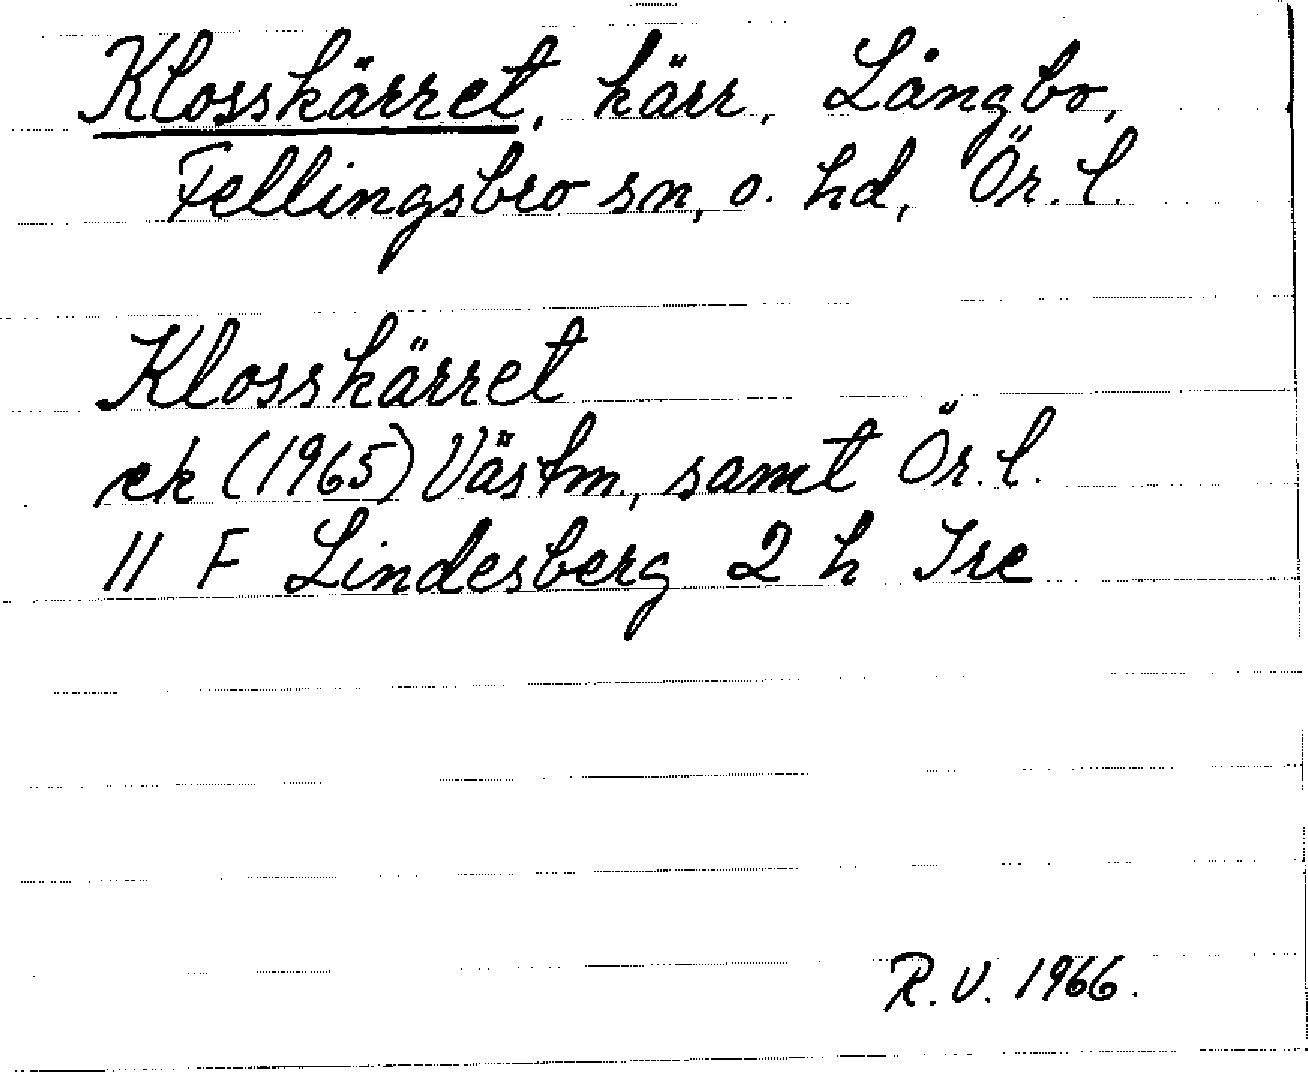 Klosskärret, kärr, Långbo,
Fellingsbro sn, o. hd, Ör. l.
Klosskärret
ek (1965) Västm., samt Ör. l.
11 F Lindesberg 2 h Tre
R. V. 1966.